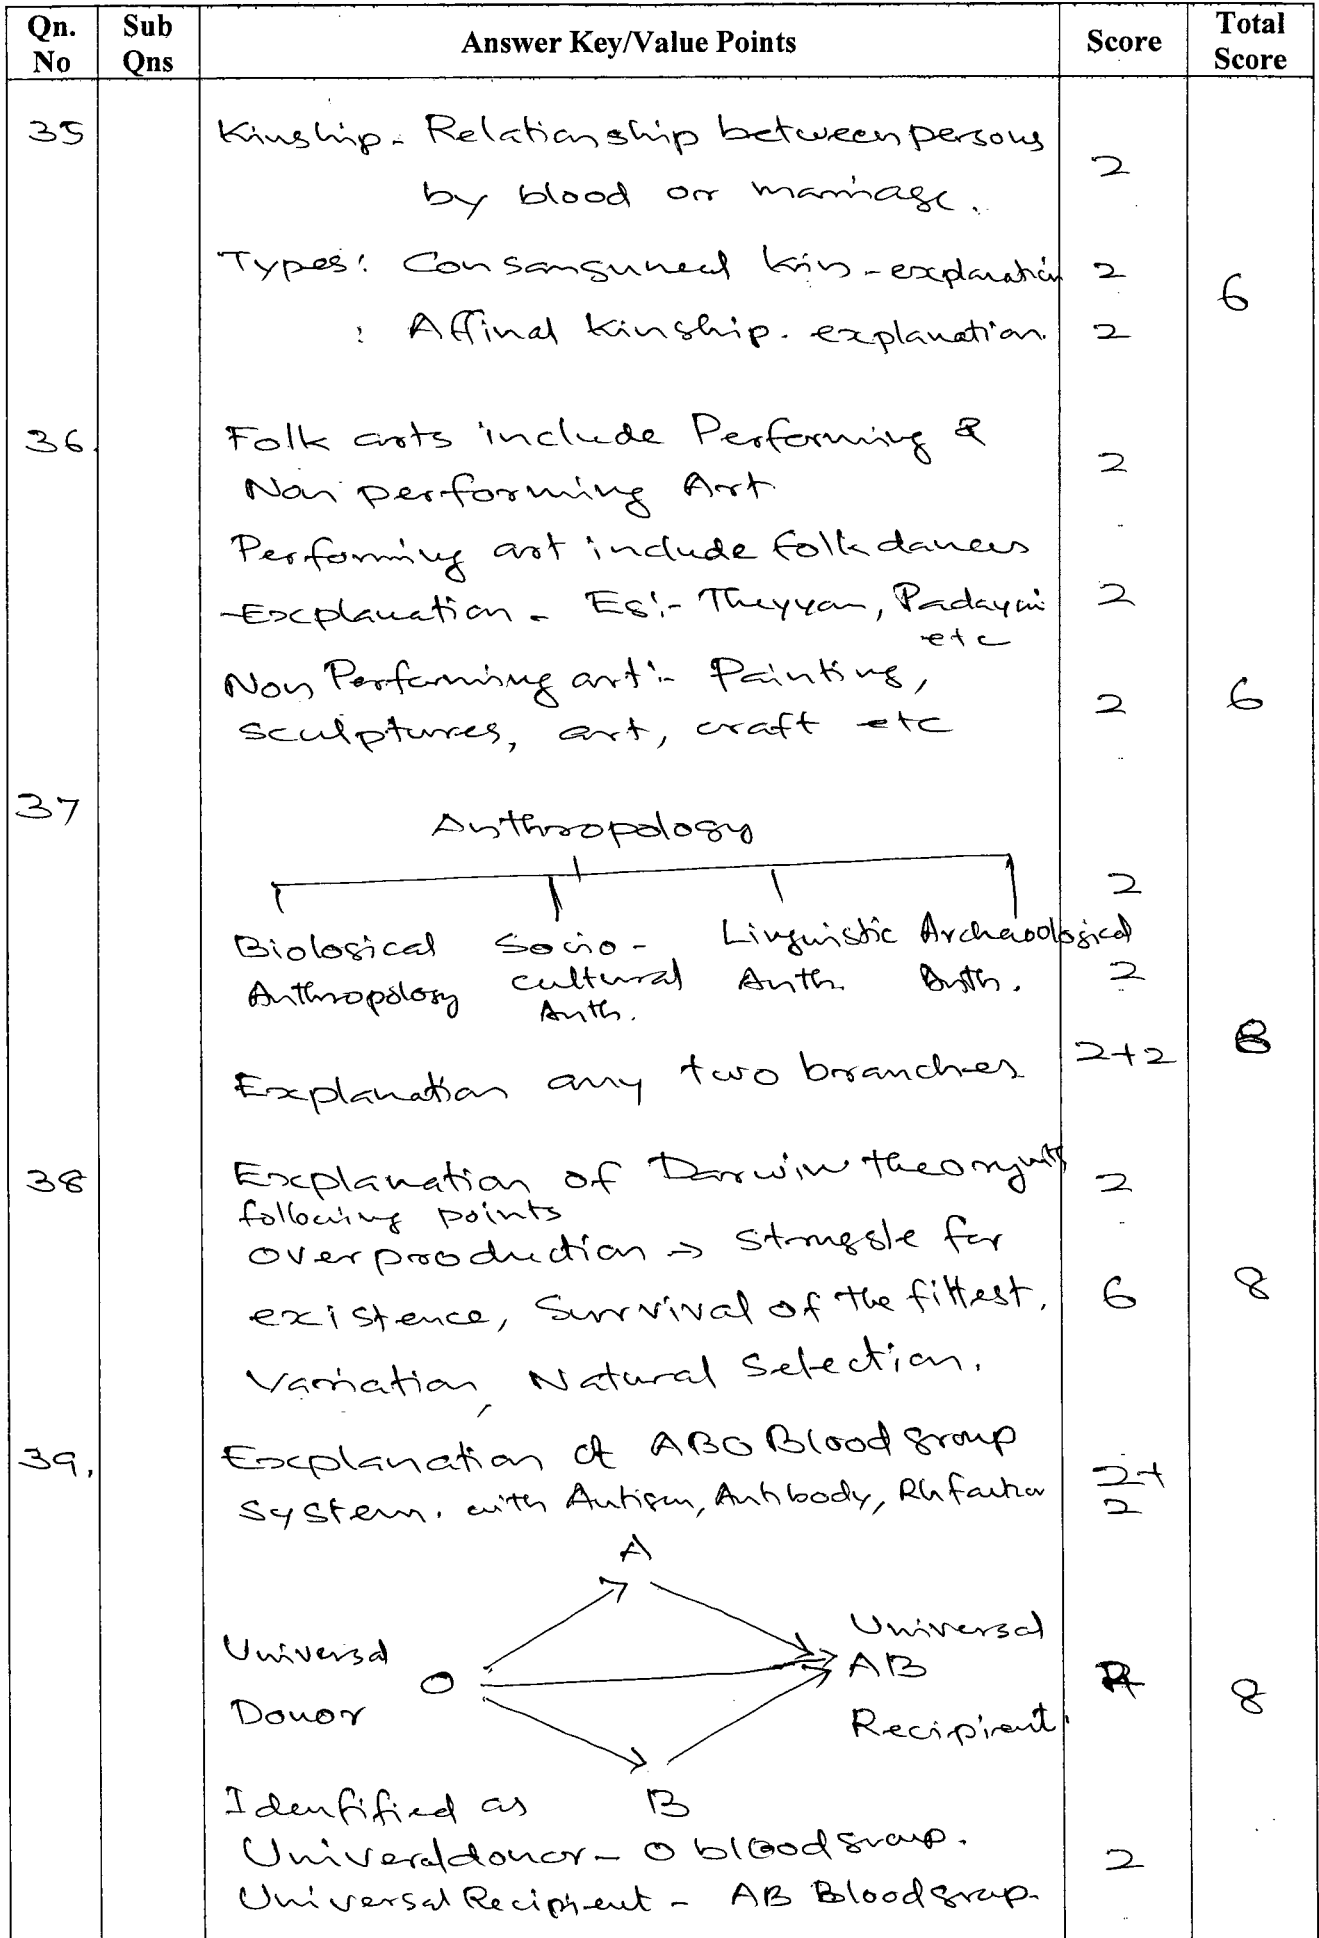 Qn. No Sub Qns Answer Key/Value Points Score Total Score
35 Kinship - Relationship between persons
by blood or marriage. 2
Types: Consanguneal kin - explanation 2
6
: Affinal kinship. explanation. 2
36. Folk arts include Performing &
Non performing Art 2
Performing art include folk dances
- Explanation - Eg:- Theyyam, Padayani 2
etc
Non Performing art:- Painting,
sculptures, art, craft etc 2 6
37 Anthropology
2
Biological Socio- Linguistic Archaeological
Anthropology cultural Anth. Anth. 2
Anth.
Explanation any two branches 2+2 8
38 Explanation of Darwin theory with 2
following points
over production → struggle for
existence, Survival of the fittest, 6 8
Variation, Natural Selection.
39. Explanation of ABO Blood group
system. with Antigen, Antibody, Rh factor 2+
2
A
Universal Universal
O AB
Donor Recipient 8
Idenfified as B
Univeral donor - O blood group.
Universal Recipient - AB Blood group. 2